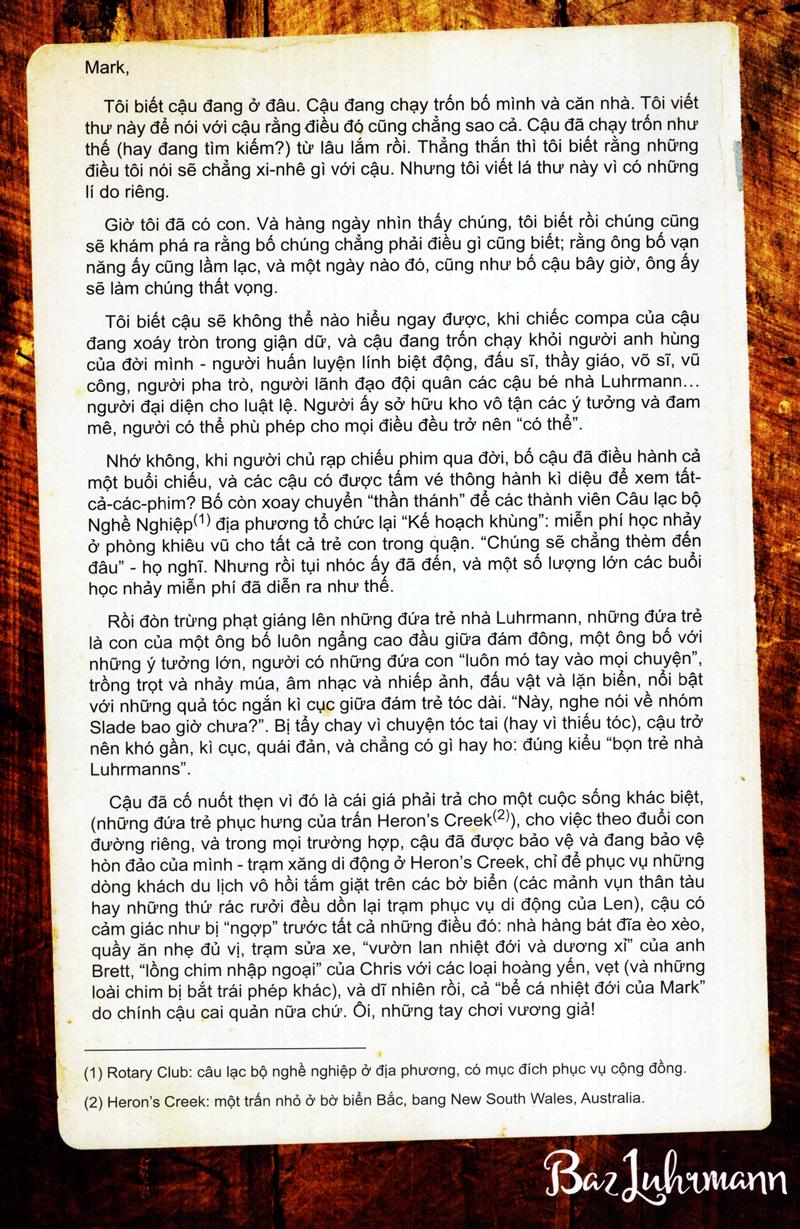 Mark,
Tôi biết cậu đang ở đâu. Cậu đang chạy trốn bố mình và căn nhà. Tôi viết
thư này để nói với cậu rằng điều đó cũng chẳng sao cả. Cậu đã chạy trốn như
thế (hay đang tìm kiếm?) từ lâu lắm rồi. Thẳng thắn thì tôi biết rằng những
điều tôi nói sẽ chẳng xi-nhê gì với cậu. Nhưng tôi viết lá thư này vì có những
lí do riêng.
Giờ tôi đã có con. Và hàng ngày nhìn thấy chúng, tôi biết rồi chúng cũng
sẽ khám phá ra rằng bố chúng chẳng phải điều gì cũng biết; rằng ông bố vạn
năng ấy cũng lầm lạc, và một ngày nào đó, cũng như bố cậu bây giờ, ông ấy
sẽ làm chúng thất vọng.
Tôi biết cậu sẽ không thể nào hiểu ngay được, khi chiếc compa của cậu
đang xoáy tròn trong giận dữ, và cậu đang trốn chạy khỏi người anh hùng
của đời mình - người huấn luyện lính biệt động, đấu sĩ, thầy giáo, võ sĩ, vũ
công, người pha trò, người lãnh đạo đội quân các cậu bé nhà Luhrmann...
người đại diện cho luật lệ. Người ấy sở hữu kho vô tận các ý tưởng và đam
mê, người có thể phù phép cho mọi điều đều trở nên “có thể”.
Nhớ không, khi người chủ rạp chiếu phim qua đời, bố cậu đã điều hành cả
một buổi chiếu, và các cậu có được tấm vé thông hành kì diệu để xem tất-
cả-các-phim? Bố còn xoay chuyển “thần thánh” để các thành viên Câu lạc bộ
Nghề Nghiệp(1) địa phương tổ chức lại “Kế hoạch khùng”: miễn phí học nhảy
ở phòng khiêu vũ cho tất cả trẻ con trong quận. “Chúng sẽ chẳng thèm đến
đâu” - họ nghĩ. Nhưng rồi tụi nhóc ấy đã đến, và một số lượng lớn các buổi
học nhảy miễn phí đã diễn ra như thế.
Rồi đòn trừng phạt giáng lên những đứa trẻ nhà Luhrmann, những đứa trẻ
là con của một ông bố luôn ngẩng cao đầu giữa đám đông, một ông bố với
những ý tưởng lớn, người có những đứa con “luôn mó tay vào mọi chuyện”,
trồng trọt và nhảy múa, âm nhạc và nhiếp ảnh, đấu vật và lặn biển, nổi bật
với những quả tóc ngắn kì cục giữa đám trẻ tóc dài. “Này, nghe nói về nhóm
Slade bao giờ chưa?”. Bị tẩy chay vì chuyện tóc tai (hay vì thiếu tóc), cậu trở
nên khó gần, kì cục, quái đản, và chẳng có gì hay ho: đúng kiểu “bọn trẻ nhà
Luhrmanns”.
Cậu đã cố nuốt thẹn vì đó là cái giá phải trả cho một cuộc sống khác biệt,
(những đứa trẻ phục hưng của trấn Heron’s Creek(2)), cho việc theo đuổi con
đường riêng, và trong mọi trường hợp, cậu đã được bảo vệ và đang bảo vệ
hòn đảo của mình - trạm xăng di động ở Heron’s Creek, chỉ để phục vụ những
dòng khách du lịch vô hồi tắm giặt trên các bờ biển (các mảnh vụn thân tàu
hay những thứ rác rưởi đều dồn lại trạm phục vụ di động của Len), cậu có
cảm giác như bị “ngợp” trước tất cả những điều đó: nhà hàng bát đĩa èo xèo,
quầy ăn nhẹ đủ vị, trạm sửa xe, “vườn lan nhiệt đới và dương xỉ” của anh
Brett, “lồng chim nhập ngoại” của Chris với các loại hoàng yến, vẹt (và những
loài chim bị bắt trái phép khác), và dĩ nhiên rồi, cả “bể cá nhiệt đới của Mark”
do chính cậu cai quản nữa chứ. Ôi, những tay chơi vương giả!
(1) Rotary Club: câu lạc bộ nghề nghiệp ở địa phương, có mục đích phục vụ cộng đồng.
(2) Heron’s Creek: một trấn nhỏ ở bờ biển Bắc, bang New South Wales, Australia.
Baz Luhrmann